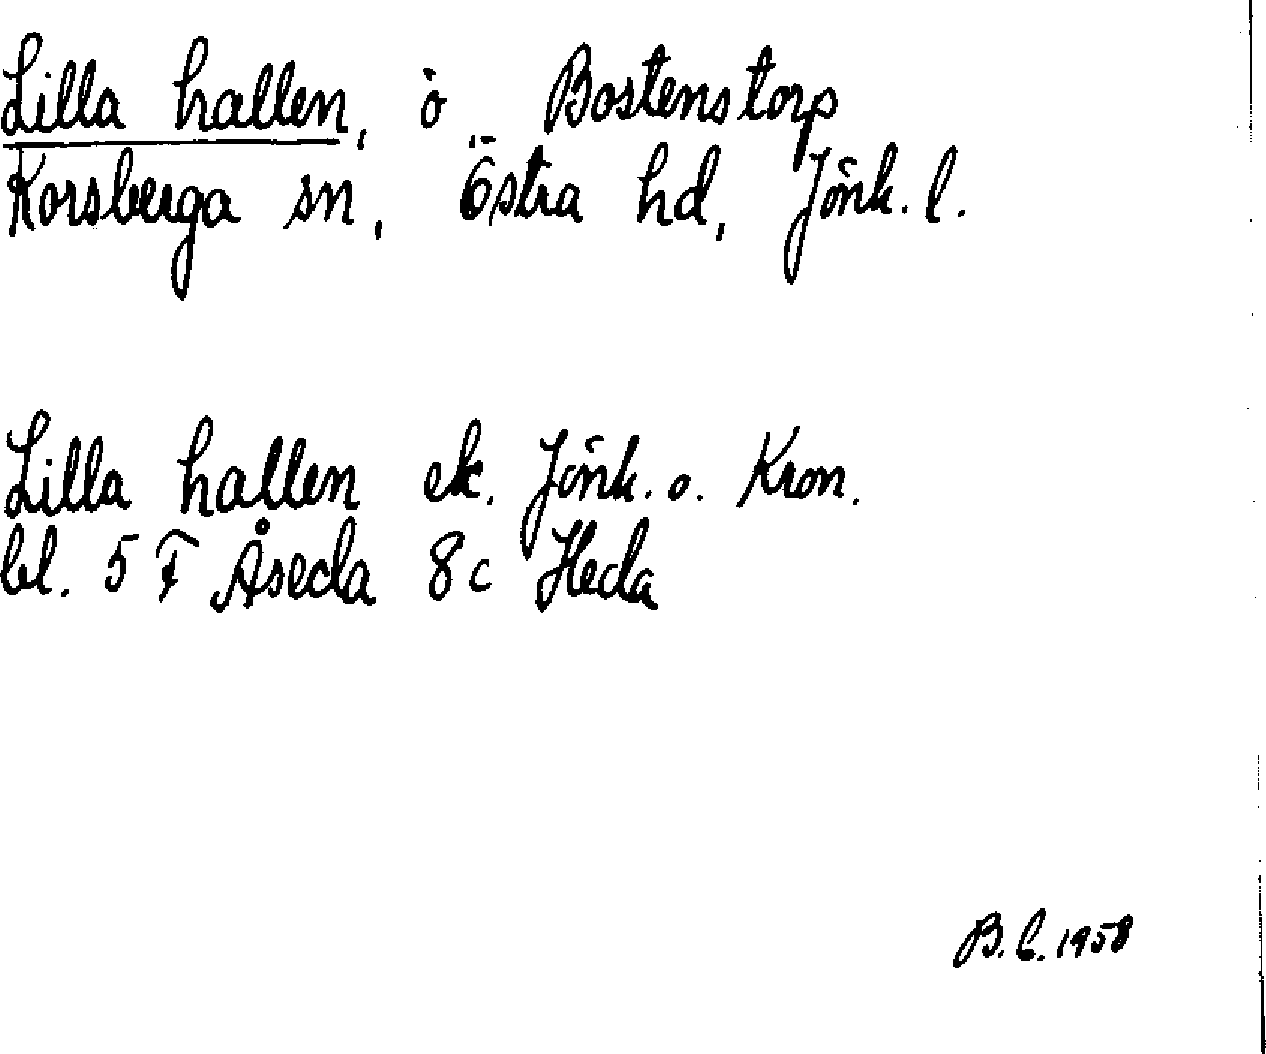 Lilla hallen, ö Bostenstorp
Korsberga sn, Östra hd, Jönk. l.
Lilla hallen ek. Jönk. o. Kron.
bl. 5 F Åseda 8c Heda
B. C. 1958